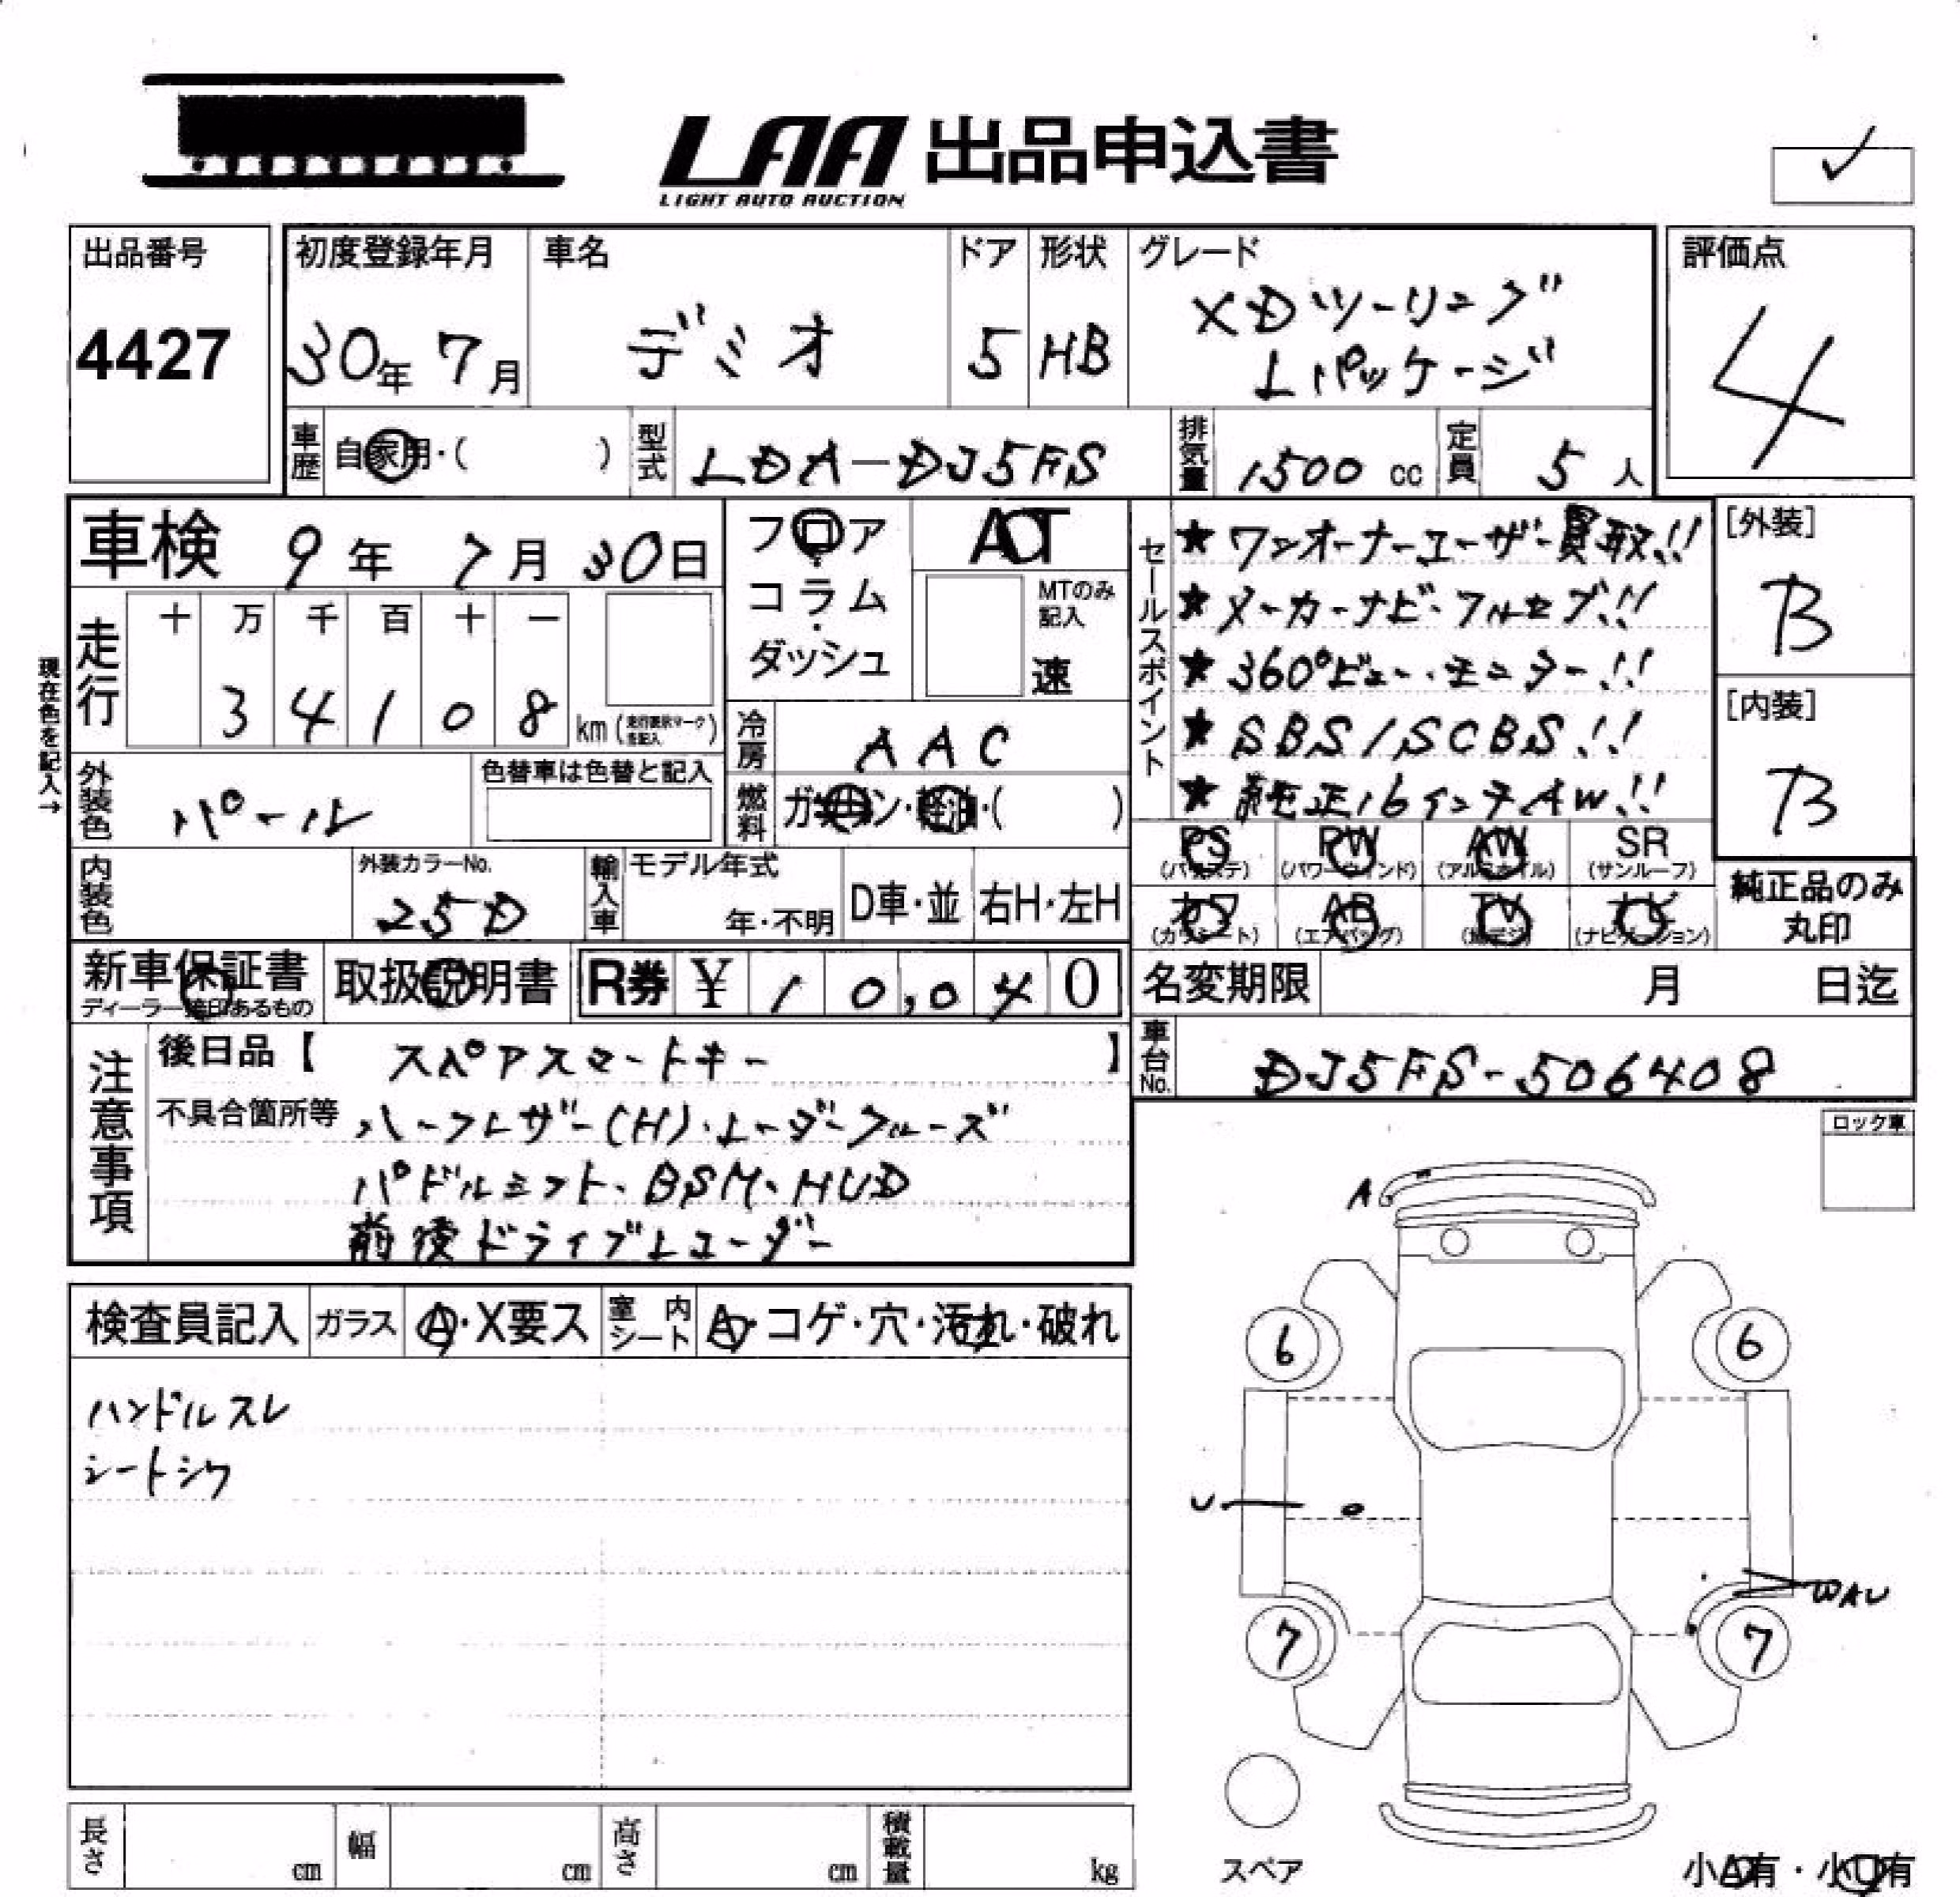 LAA 出品申込書
LIGHT AUTO AUCTION
出品番号
4427
初度登録年月
30年 7月
車名
デミオ
ドア
5
形状
HB
グレード
XDツーリング
Lパッケージ
評価点
4
車歴 自家用・( )
型式 LDA-DJ5FS
排気量 1500 cc
定員 5 人
車検 9年 7月 30日
フロア
・
コラム
・
ダッシュ
AT
MTのみ
記入
速
セールスポイント
★ワンオーナーユーザー買取!!
★メーカーナビ・フルセグ!!
★360°ビュー・モニター!!
★SBS/SCBS!!
★純正16インチAW!!
[外装]
B
[内装]
B
現在色を記入→
走行
十 万 千 百 十 一
3 4 1 0 8
km (走行表示マーク
を記入)
冷房 AAC
燃料 ガソリン・軽油・( )
外装色 パール
色替車は色替と記入
PS
(パワステ)
PW
(パワーウインド)
AW
(アルミホイル)
SR
(サンルーフ)
カワ
(カワシート)
AB
(エアバッグ)
TV
(地デジ)
ナビ
(ナビゲーション)
純正品のみ
丸印
内装色
外装カラーNo.
25D
輸入車
モデル年式
年・不明
D車・並
右H・左H
新車保証書
取扱説明書
R券 ¥ 1 0,0 4 0
名変期限 月 日迄
車台No. DJ5FS-506408
注意事項
後日品【 スペアスマートキー 】
不具合箇所等 ハーフレザー(H)・レーダークルーズ
パドルシフト、BSM、HUD
前後ドライブレコーダー
ロック車
検査員記入
ガラス
A・X要ス
室内
シート
A・コゲ・穴・汚れ・破れ
ハンドルスレ
シートシワ
A
6
6
U
WAU
7
7
スペア
長さ cm
幅 cm
高さ cm
積載量 kg
小A有・小U有